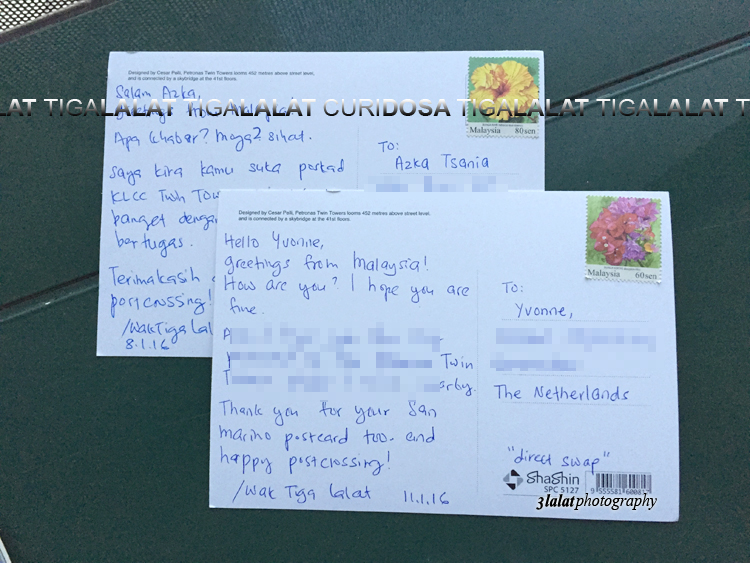 Designed by Cesar Pelli, Petronas Twin Towers looms 452 metres above street level,
and is connected by a skybridge at the 41st floors
Salam Azka,
LAT TIGALALAT TIGALALAT CURIDOSA TIGALALAT TIGALALAT T
Apa khabar? Moga2 sihat.
Saya kira kamu suka poskad
KLCC Twin
banget
bertugas.
Terimakasih
postcrossing!
/Wak Tiga Lal
8.1.16
Malaysia 80sen
TO:
Azka Tsania
Designed by Cesar Pelli, Petronas Twin Towers looms 452 metres above street level,
and is connected by a skybridge at the 41st floors
Hello Yvonne,
greetings from Malaysia!
How are you? I hope you are
fine.
Twin
Thank you for your San
Marino postcard too. and
happy postcrossing!
/Wak Tiga Lalat 11.1.16
Malaysia 60sen
To:
Yvonne,
The Netherlands
"direct swap"
ShaShin
SPC 5127
3lalatphotography